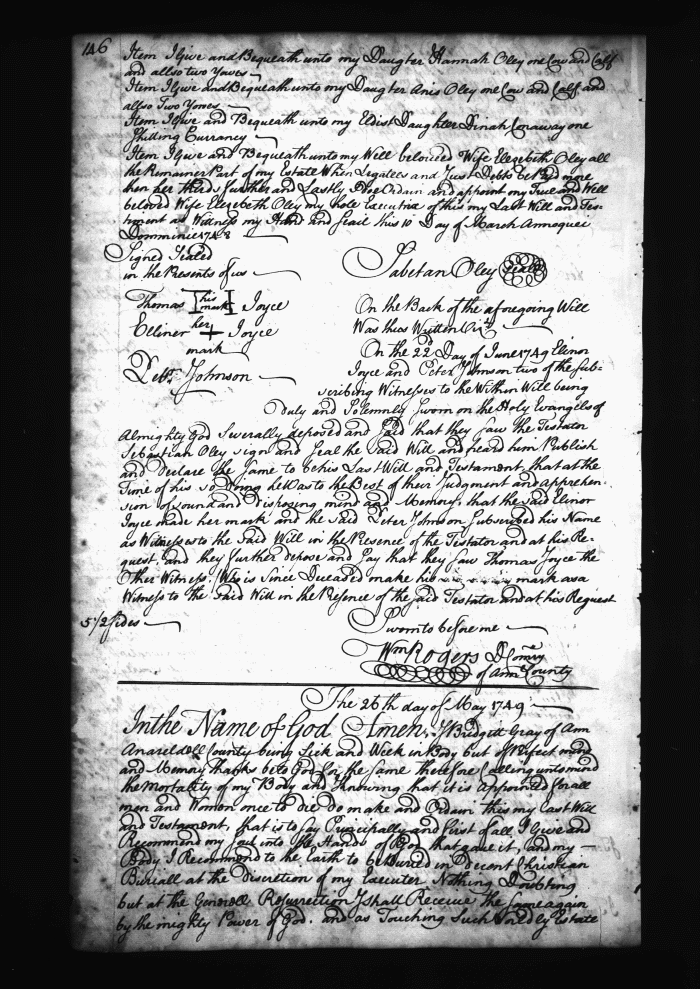 146
Item I Give and Bequeath unto my Daugter Hannah Oley one Cow and Calf
and allso two Yowes
Item I Give and Bequeath unto my Daugter Anis Oley one Cow and Calf and
allso Two Yowes
Item I Give and Bequeath unto my Eldist Daughter Dinah Conaway one
Shilling Currancy
Item I Give and Bequeath unto my Well beloved Wife Elezebeth Oley all
the Remainer Part of my Estate When Legatees and Just Debts be Paid more
then her thirds further and Lastly I Doe Ordain and appoint my True and Well
beloved Wife Elezebeth Oley my hole Executrix of this my Last Will and Tes-
tment as Witness my Hand and Seail this 10 Day of March Annoquei
Domminie 1748
Signed Sealed
in the Presents of us
Sabetan Oley Seale
Thomas his mark Joyce
Ellinor her + Joyce
mark
Petr. Johnson
On the Back of the aforegoing Will
Was thus Written Viz.
On the 22d Day of June 1749 Elinor
Joyce and Peter Johnson two of the Sub-
scribing Witnesses to the Within Will being
duly and Solemnly Sworn on the Holy Evangels of
Almighty God Severally deposed and Said that they Saw the Testator
Sebastian Oley sign and Seal the Said Will and heard him Publish
and Declare the Same to be his Last Will and Testament, that at the
Time of his so doing he Was to the Best of their Judgment and apprehen-
sion of sound and Disposing mind and Memory, that the said Elinor
Joyce made her mark and the said Peter Johnson Subscribed his Name
as Witnesses to the Said Will in the Presence of the Testator and at his Re-
quest. and they further depose and Say that they Saw Thomas Joyce the
Other Witness (Who is Since Deceased make his mark as a
Witness to the Said Will in the Presence of the said Testator and at his Request
5 1/2 sides
Sworn to before me
Wm Rogers D Comry
of Ann County
The 26th day of May 1749
In the Name of God Amen, I Bridgett Gray of Ann
Anareldell County being Sick and Week in Body but of Perfect mind
and Memory thanks be to God for the Same therefore Calling unto mind
the Mortality of my Body and Knowing that it is Appointed for all
men and Women once to die Do make and Ordain this my Last Will
and Testament, that is to Say Principally and first of all I Give and
Recommend my Soul into the Hands of God that gave it, and my
Body I Recommend to the Earth to be Buried in Decent Christian
Buriall at the discretion of my Executer Nothing Doubting
but at the Generall Resurrection I shall Receive the Same again
by the mighty Power of God. and as Touching Such Worldly Estate